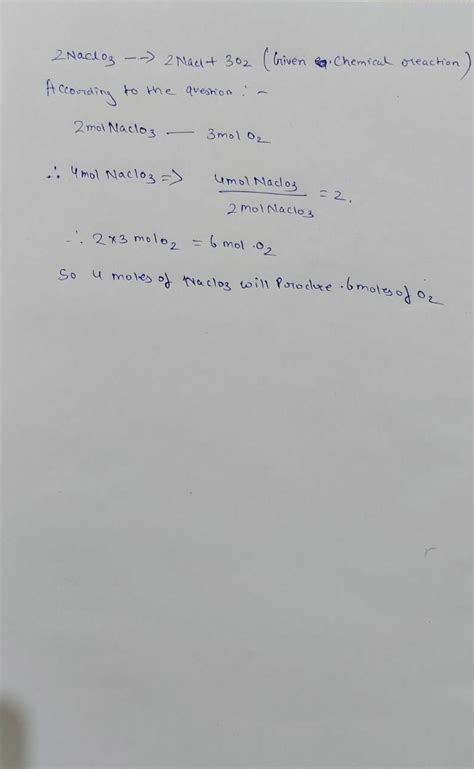 2NaClO3 --> 2NaCl + 3O2 (Given Chemical reaction)
According to the question :-
2mol NaClO3 — 3mol O2
∴ 4mol NaClO3 => 4mol NaClO3 / 2mol NaClO3 = 2.
∴ 2×3 mol O2 = 6 mol · O2
So 4 moles of NaClO3 will Produce · 6 moles of O2